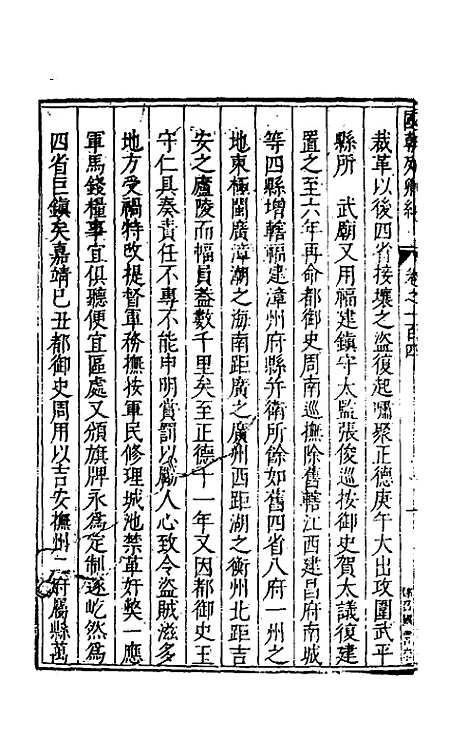 國朝列卿紀 卷之一百四
裁革以後四省接壤之盜復起嘯聚正德庚午大出攻圍武平
縣所 武廟又用福建鎮守太監張俊巡按御史賀太議復建
置之至六年再命都御史周南巡撫除舊轄江西建昌府南城
等四縣增轄福建漳州府縣并衛所餘如舊四省八府一州之
地東極閩廣漳潮之海南距廣之廣州西距湖之衡州北距吉
安之廬陵而幅員葢數千里矣至正德十一年又因都御史王
守仁具奏責任不專不能申明賞罰以勵人心致令盜賊滋多
地方受禍特改提督軍務撫按軍民修理城池禁革奸獘一應
軍馬錢糧事宜俱聽便宜區處又頒旗牌永為定制遂屹然為
四省巨鎮矣嘉靖己丑都御史周用以吉安撫州二府屬縣萬